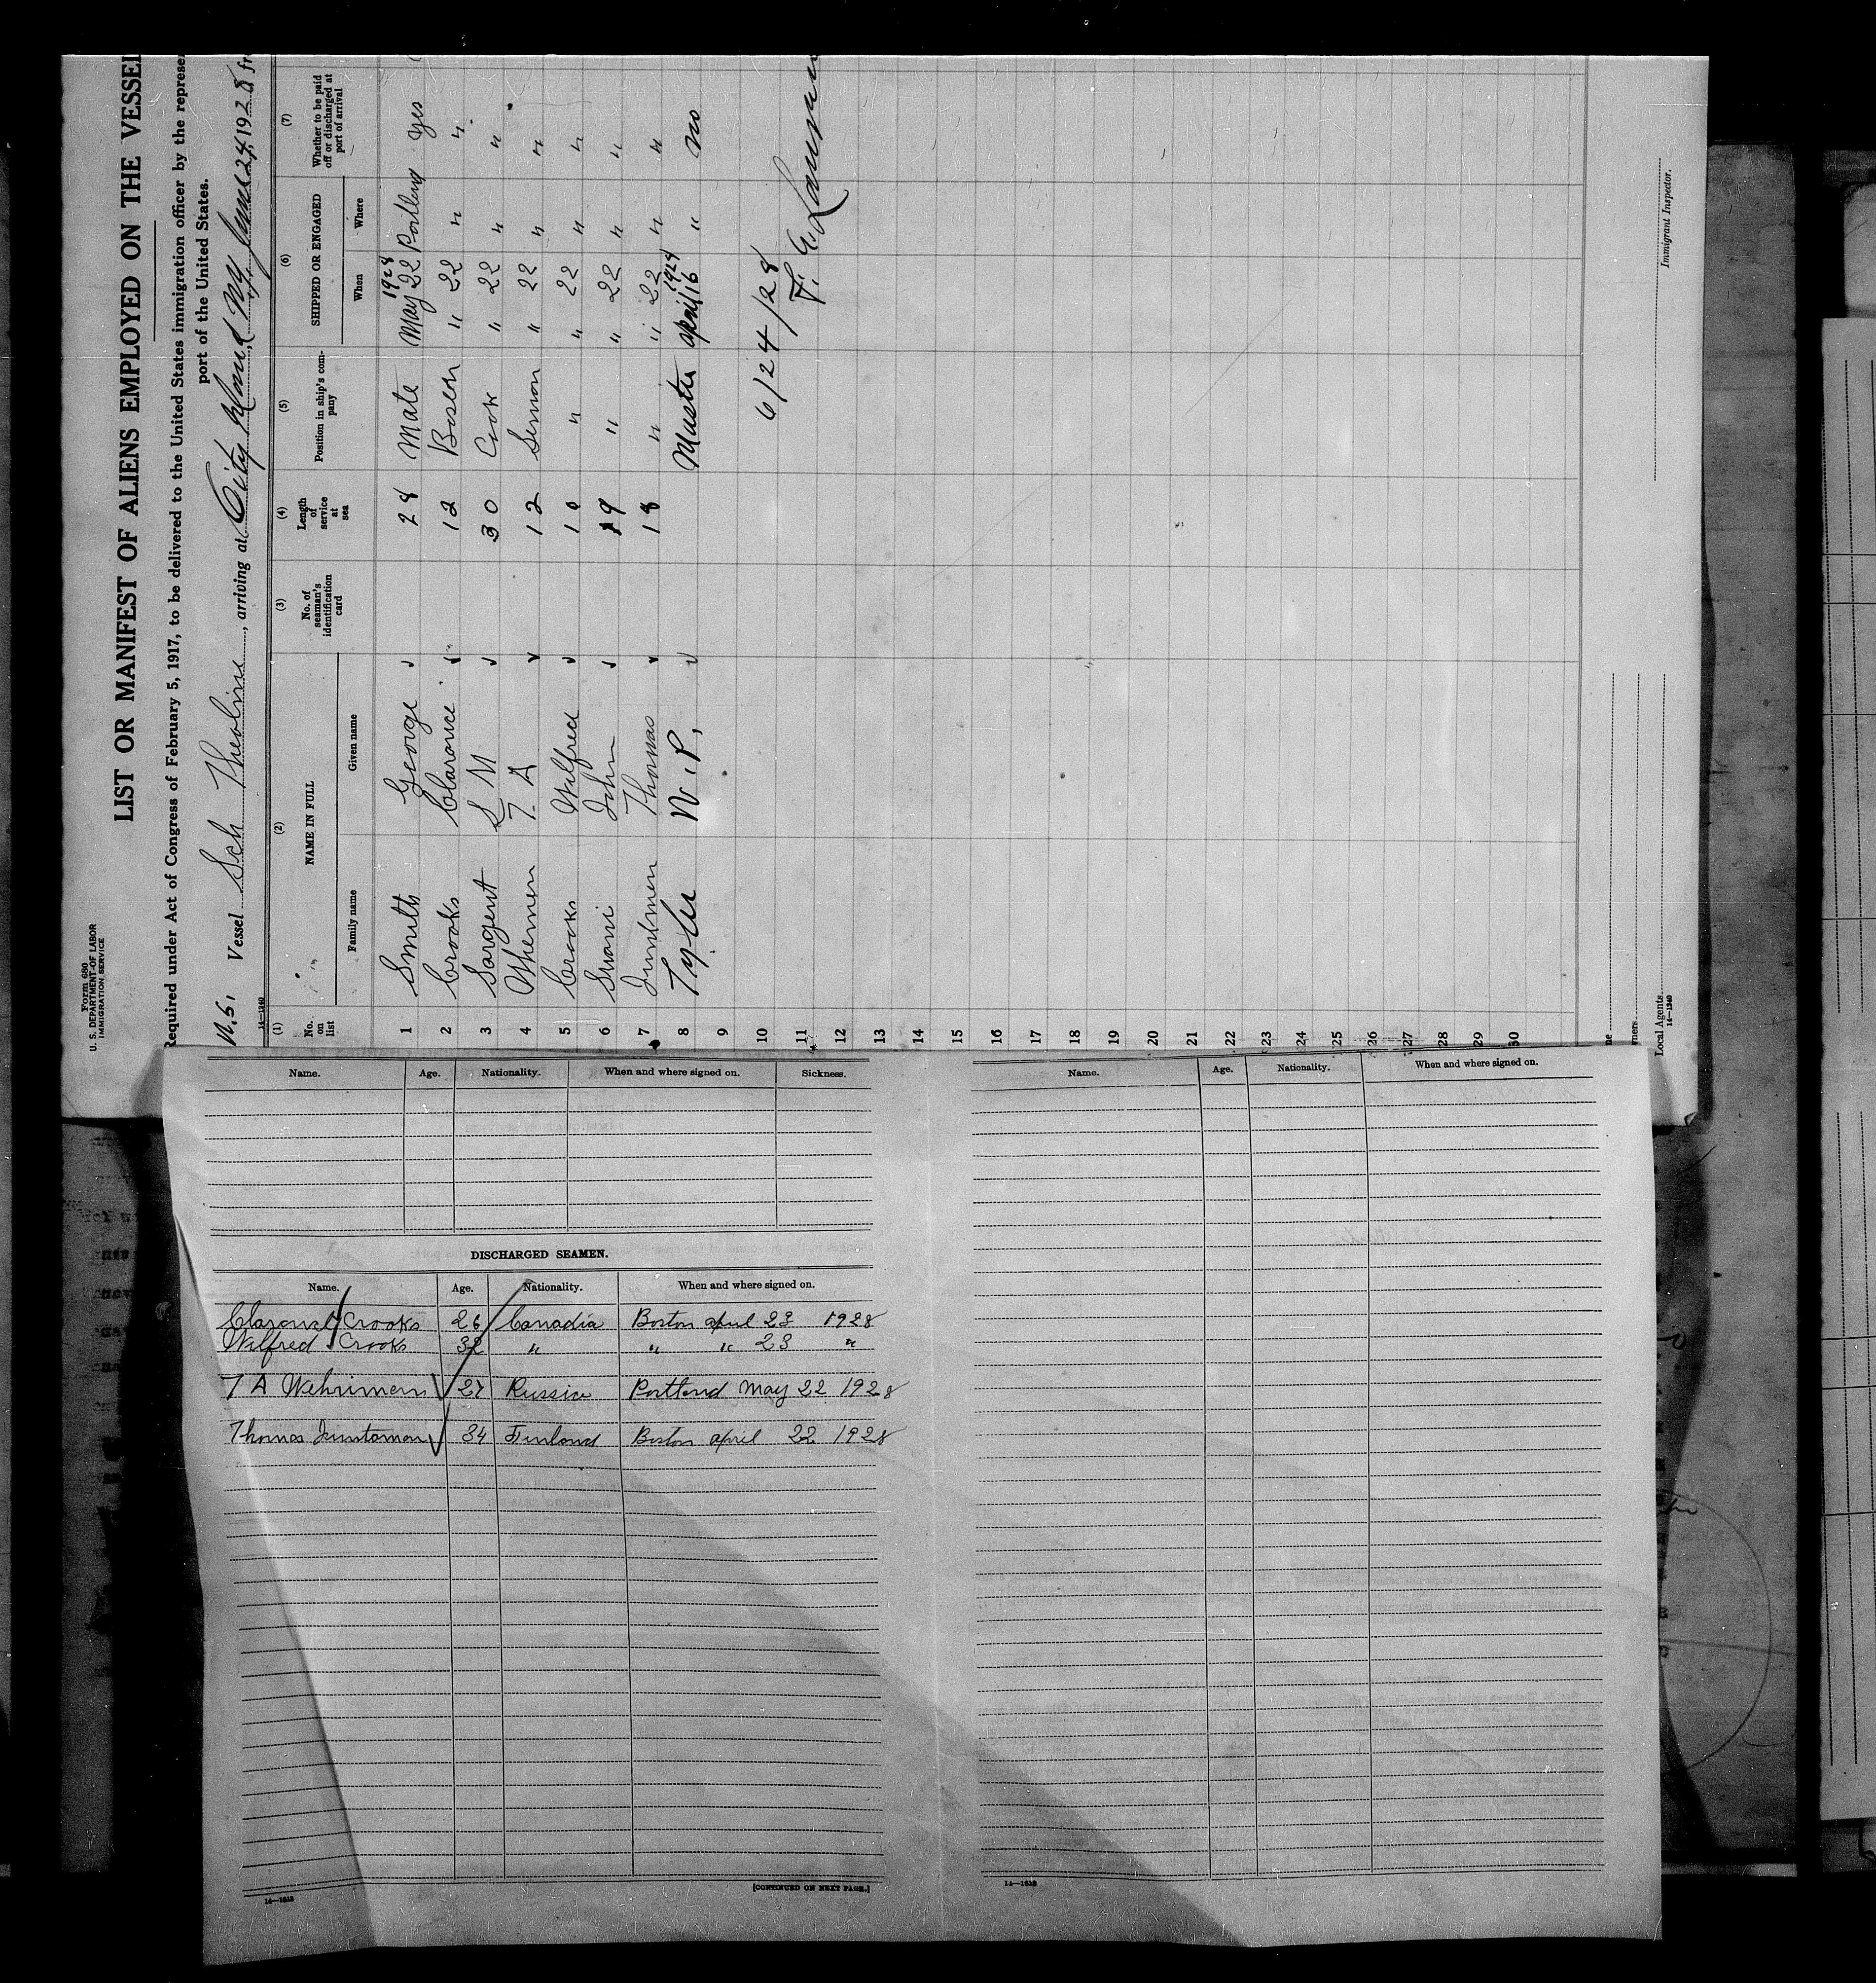 Form 680
U. S. DEPARTMENT OF LABOR
IMMIGRATION SERVICE
LIST OR MANIFEST OF ALIENS EMPLOYED ON THE VESSEL
Required under Act of Congress of February 5, 1917, to be delivered to the United States immigration officer by the represen
port of the United States.
Vessel Sch Theoline, arriving at City Island, NY, June 24, 1928, fr
14—1240
(1) (2) (3) (4) (5) (6) (7)
No. on list NAME IN FULL No. of seaman's identification card Length of service at sea Position in ship's company SHIPPED OR ENGAGED Whether to be paid off or discharged at port of arrival
Family name Given name When Where
1 Smith George 28 Mate 1928 May 22 Portland Yes
2 Crooks Clarence 12 Bosen " 22 " "
3 Sargent S M 30 Cook " 22 " "
4 T. A 12 " 22 " "
5 Crooks Wilfred 10 " " 22 " "
6 John 19 " " 22 " "
7 Thomas 18 " " 22 " "
8 Tyler W. P. Master 1928 April 16 " no
9
10 6/24/28
11
12
13
14
15
16
17
18
19
20
21
22
23
24
25
26
27
28
29
30
Immigrant Inspector.
Local Agents
14—1240
Name. Age. Nationality. When and where signed on. Sickness.
DISCHARGED SEAMEN.
Name. Age. Nationality. When and where signed on.
Crooks 26 Canadia Boston april 23 1928
Wilfred Crooks 32 " " " 23 "
T A Wehrimen 27 Russia Portland May 22 1928
Thomas 34 Finland Boston april 22 1928
[CONTINUED ON NEXT PAGE.]
14—1518
Name. Age. Nationality. When and where signed on.
14—1518